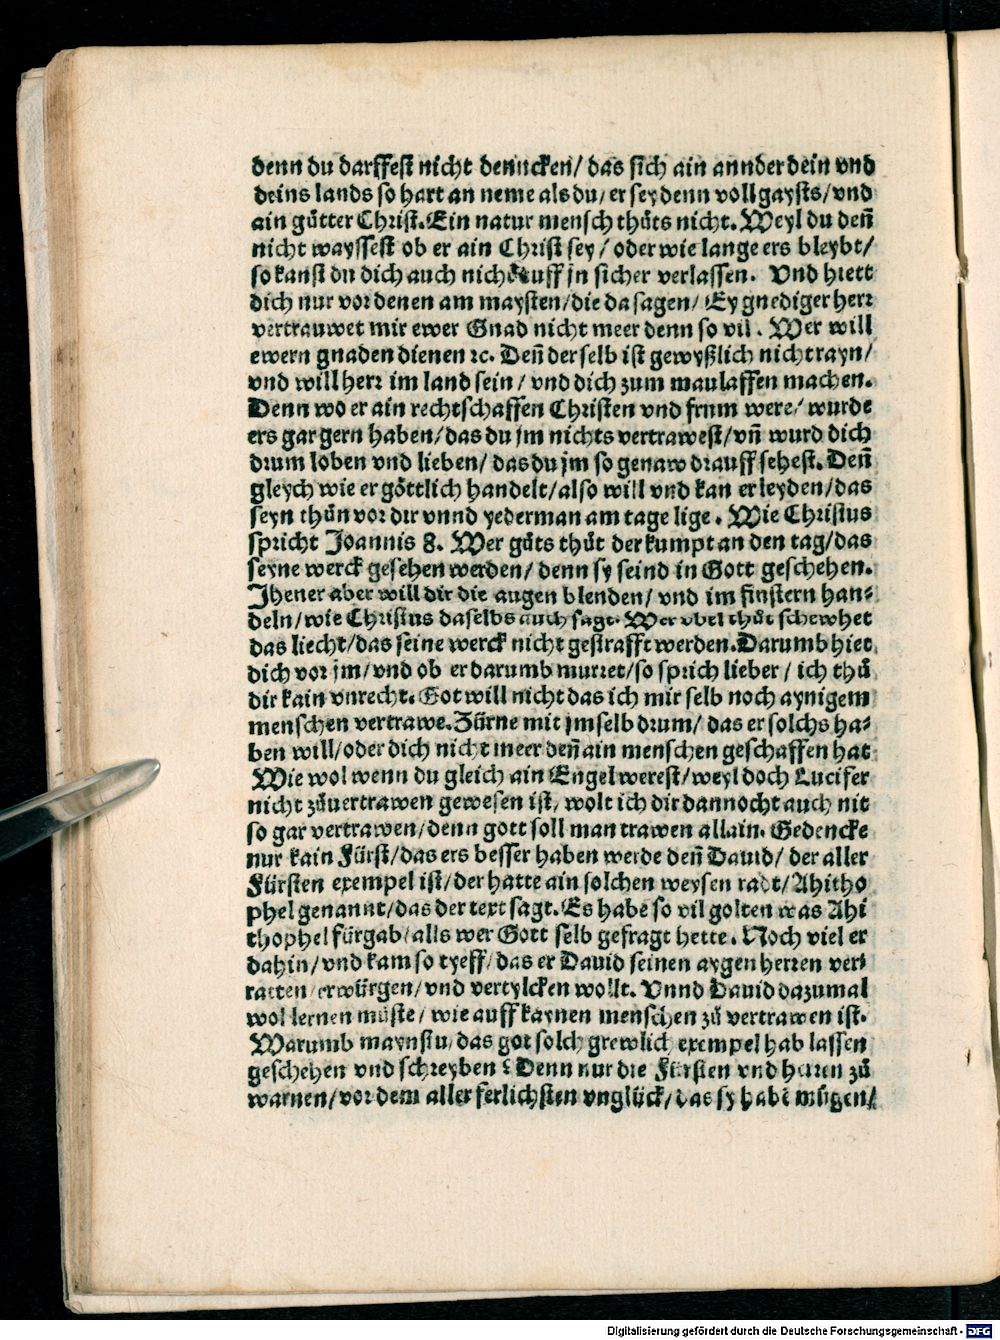 denn du darffest nicht denncken/ das sich ain annder dein vnd
deins lands so hart an neme als du/ er sey denn voll gaysts/ vnd
ain gůtter Christ. Ein natur mensch thůts nicht. Weyl du deñ
nicht wayssest ob er ain Christ sey/ oder wie lange ers bleybt/
so kanst du dich auch nicht auff jn sicher verlassen. Vnd hiett
dich nur vor denen am maysten/ die da sagen/ Ey gnediger herr
vertrauwet mir ewer Gnad nicht meer denn so vil. Wer will
ewern gnaden dienen ꝛc. Deñ der selb ist gewyßlich nicht rayn/
vnd will herr im land sein/ vnd dich zum maulaffen machen.
Denn wo er ain rechtschaffen Christen vnd frum were/ wurde
ers gar gern haben/ das du jm nichts vertrawest/ vñ wurd dich
drum loben vnd lieben/ das du jm so genaw drauff sehest. Deñ
gleych wie er göttlich handelt/ also will vnd kan er leyden/ das
seyn thůn vor dir vnnd yederman am tage lige. Wie Christus
spricht Joannis 8. Wer gůts thůt der kumpt an den tag/ das
seyne werck gesehen werden/ denn sy seind in Gott geschehen.
Jhener aber will dir die augen blenden/ vnd im finstern han⸗
deln/ wie Christus daselbs auch sagt. Wer vbel thůt schewhet
das liecht/ das seine werck nicht gestrafft werden. Darumb hiet
dich vor jm/ vnd ob er darumb murret/ so sprich lieber/ ich thů
dir kain vnrecht. Got will nicht das ich mir selb noch aynigem
menschen vertrawe. Zürne mit jm selb drum/ das er solchs ha⸗
ben will/ oder dich nicht meer deñ ain menschen geschaffen hat
Wie wol wenn du gleich ain Engel werest/ weyl doch Lucifer
nicht zůuertrawen gewesen ist, wolt ich dir dannocht auch nit
so gar vertrawen/ denn gott soll man trawen allain. Gedencke
nur kain Fürst/ das ers besser haben werde deñ Dauid/ der aller
Fürsten exempel ist/ der hatte ain solchen weysen radt/ Ahitho
phel genannt/ das der text sagt. Es habe so vil golten was Ahi
thophel fürgab/ alls wer Gott selb gefragt hette. Noch viel er
dahin/ vnd kam so tyeff/ das er Dauid seinen aygen herren ver⸗
ratten/ erwürgen/ vnd vertylcken wollt. Vnnd Dauid dazumal
wol lernen müste/ wie auff kaynen menschen zů vertrawen ist.
Warumb maynstu/ das got solch grewlich exempel hab lassen
geschehen vnd schreyben? Denn nur die Fürsten vnd herren zů
warnen/ vor dem aller ferlichsten vnglück/ das sy habē mügen/
Digitalisierung gefördert durch die Deutsche Forschungsgemeinschaft - DFG